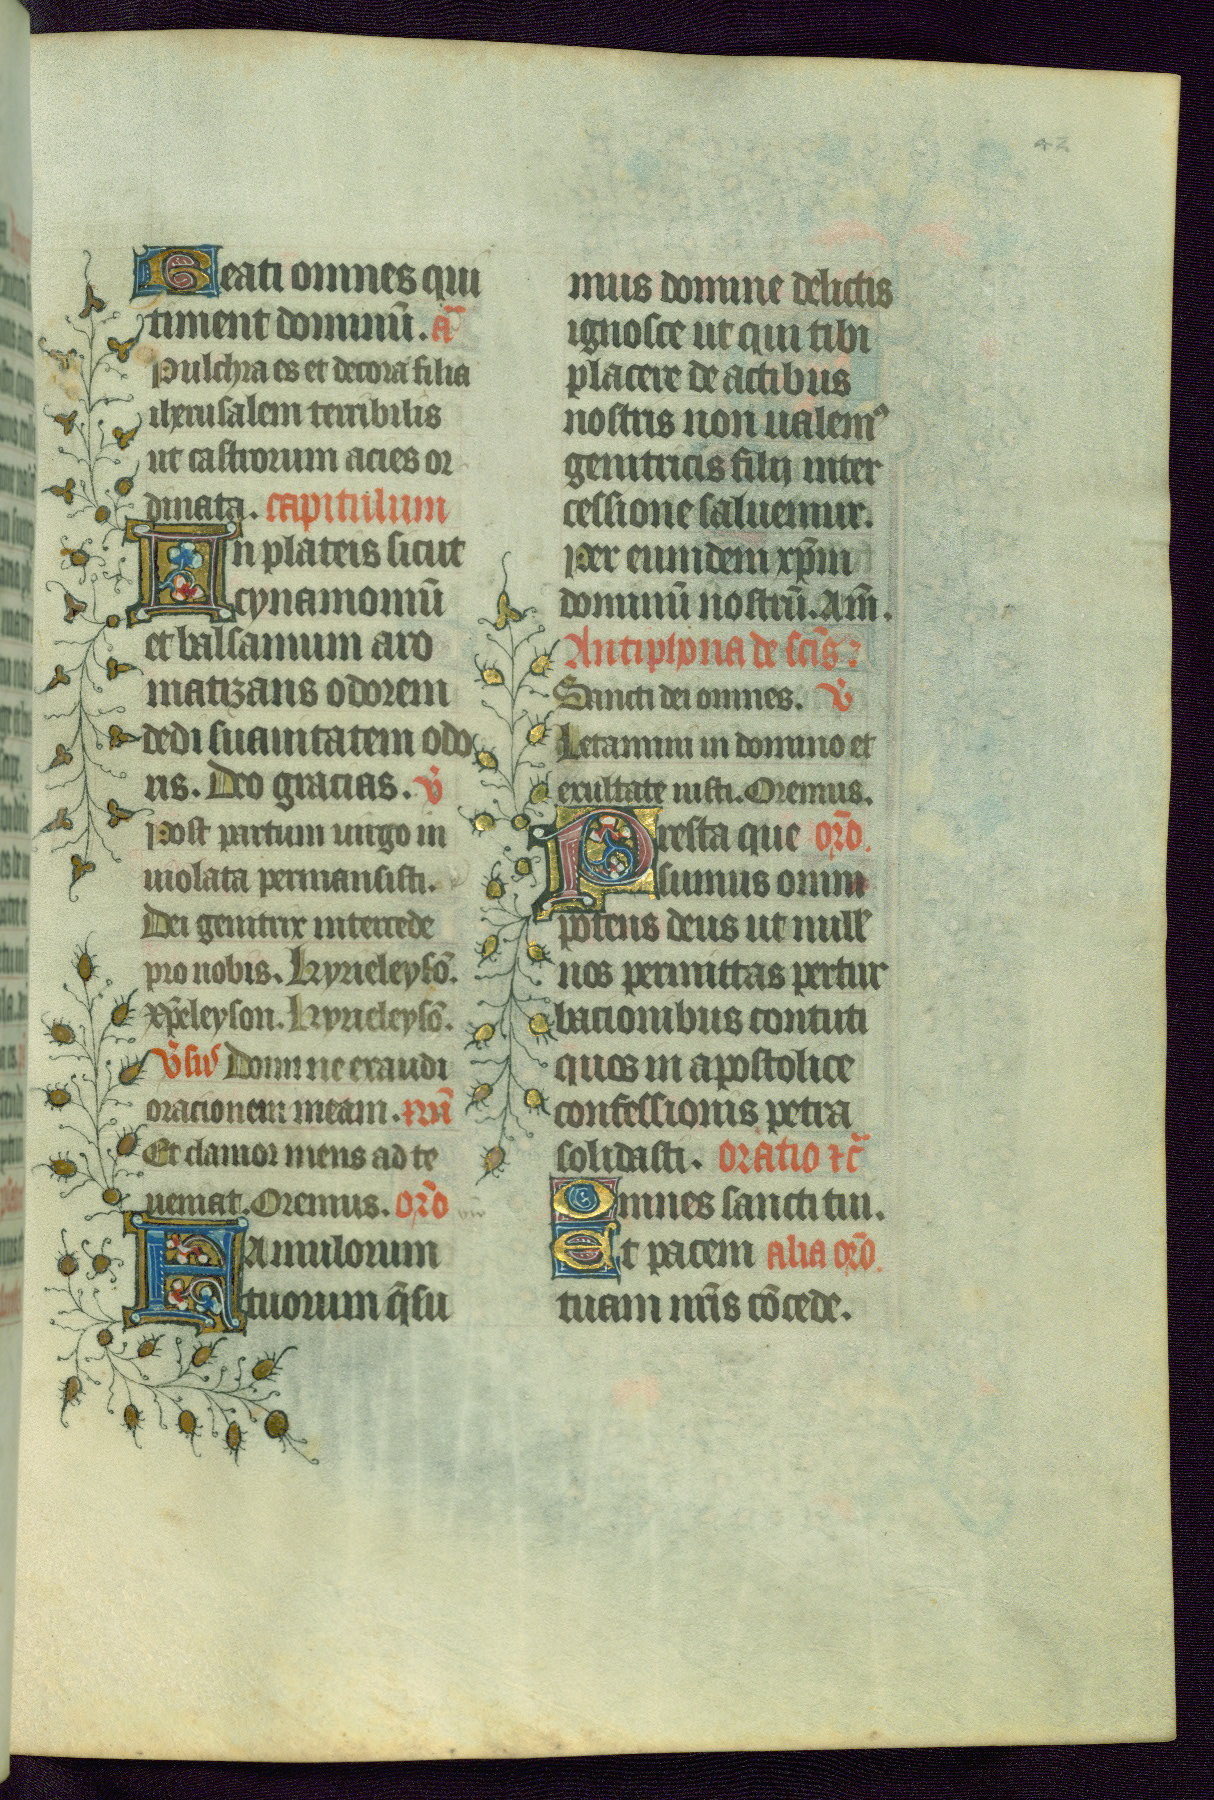 42
Beati omnes qui
timent dominū. añ
Pulchra es et decora filia
iherusalem terribilis
ut castrorum acies or
dinata. capitulum
In plateis sicut
cynamomū
et balsamum aro
matizans odorem
dedi suauitatem odo
ris. Deo gracias. v̄
Post partum uirgo in
uiolata permansisti.
Dei genitrix intercede
pro nobis. Kyrieleysō.
xp̄eleyson. Kyrieleysō.
Domine exaudi
oracionem meam.
Et clamor meus ad te
ueniat. Oremus. or̄o
FAmulorum
tuorum q̄su
mus domine delictis
ignosce ut qui tibi
placere de actibus
nostris non ualemꝰ
genitricis filij inter
cessione saluemur.
Per eumdem xp̄m
dominū nostrū. Am̄.
Antiphona de sc̄is
Sancti dei omnes. v̄
Letamini in domino et
exultate iusti. Oremus.
Presta que or̄o.
sumus omni
potens deus ut nullꝭ
nos permittas pertur
bacionibus concuti
quos in apostolice
confessionis petra
solidasti. oratio
Omnes sancti tui.
Et pacem alia or̄o.
tuam nr̄is cōcede.